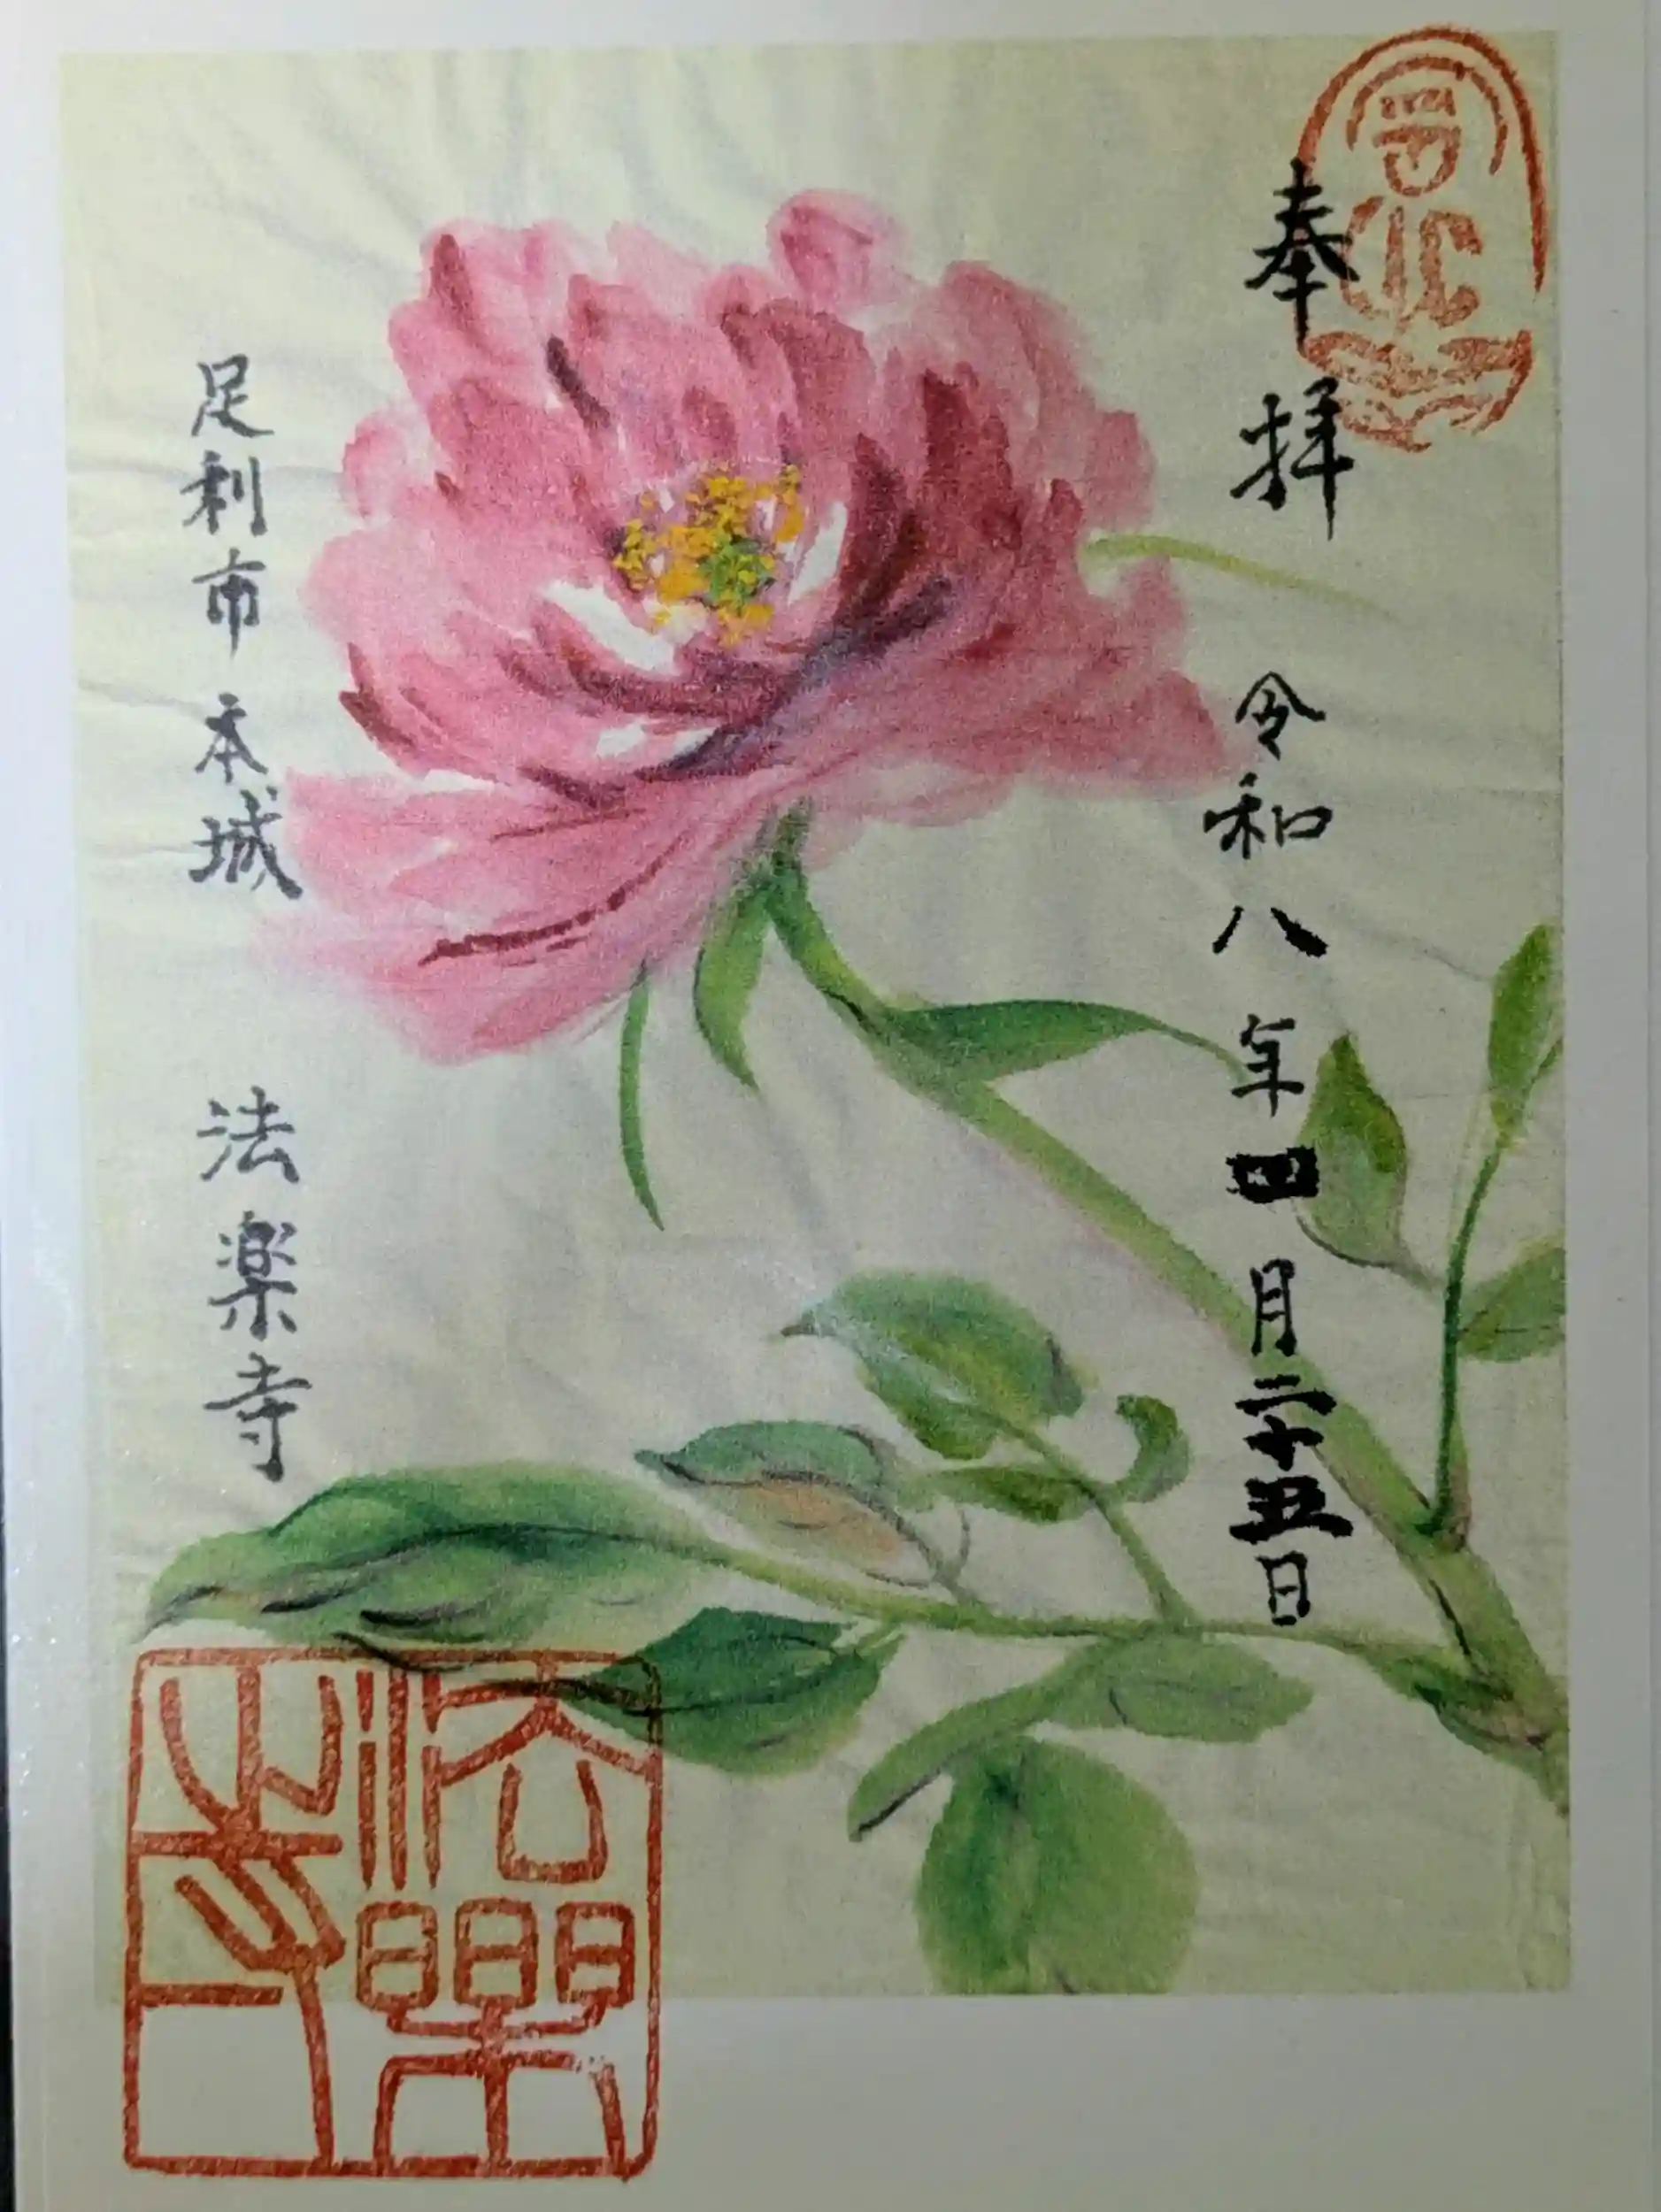 奉拝
令和八年四月二十五日
足利市 本城
法楽寺
法樂寺